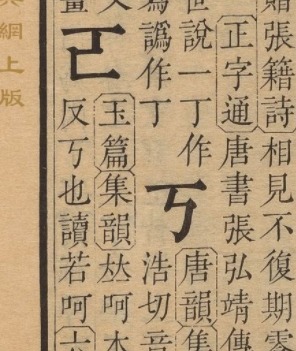 張籍詩相見不復期零
正字通唐書張弘靖傳
說一丁作
譌作丁
丂
唐韻集
浩切音
𠀀
玉篇集韻𠀤呵本
反丂也讀若呵
網上版